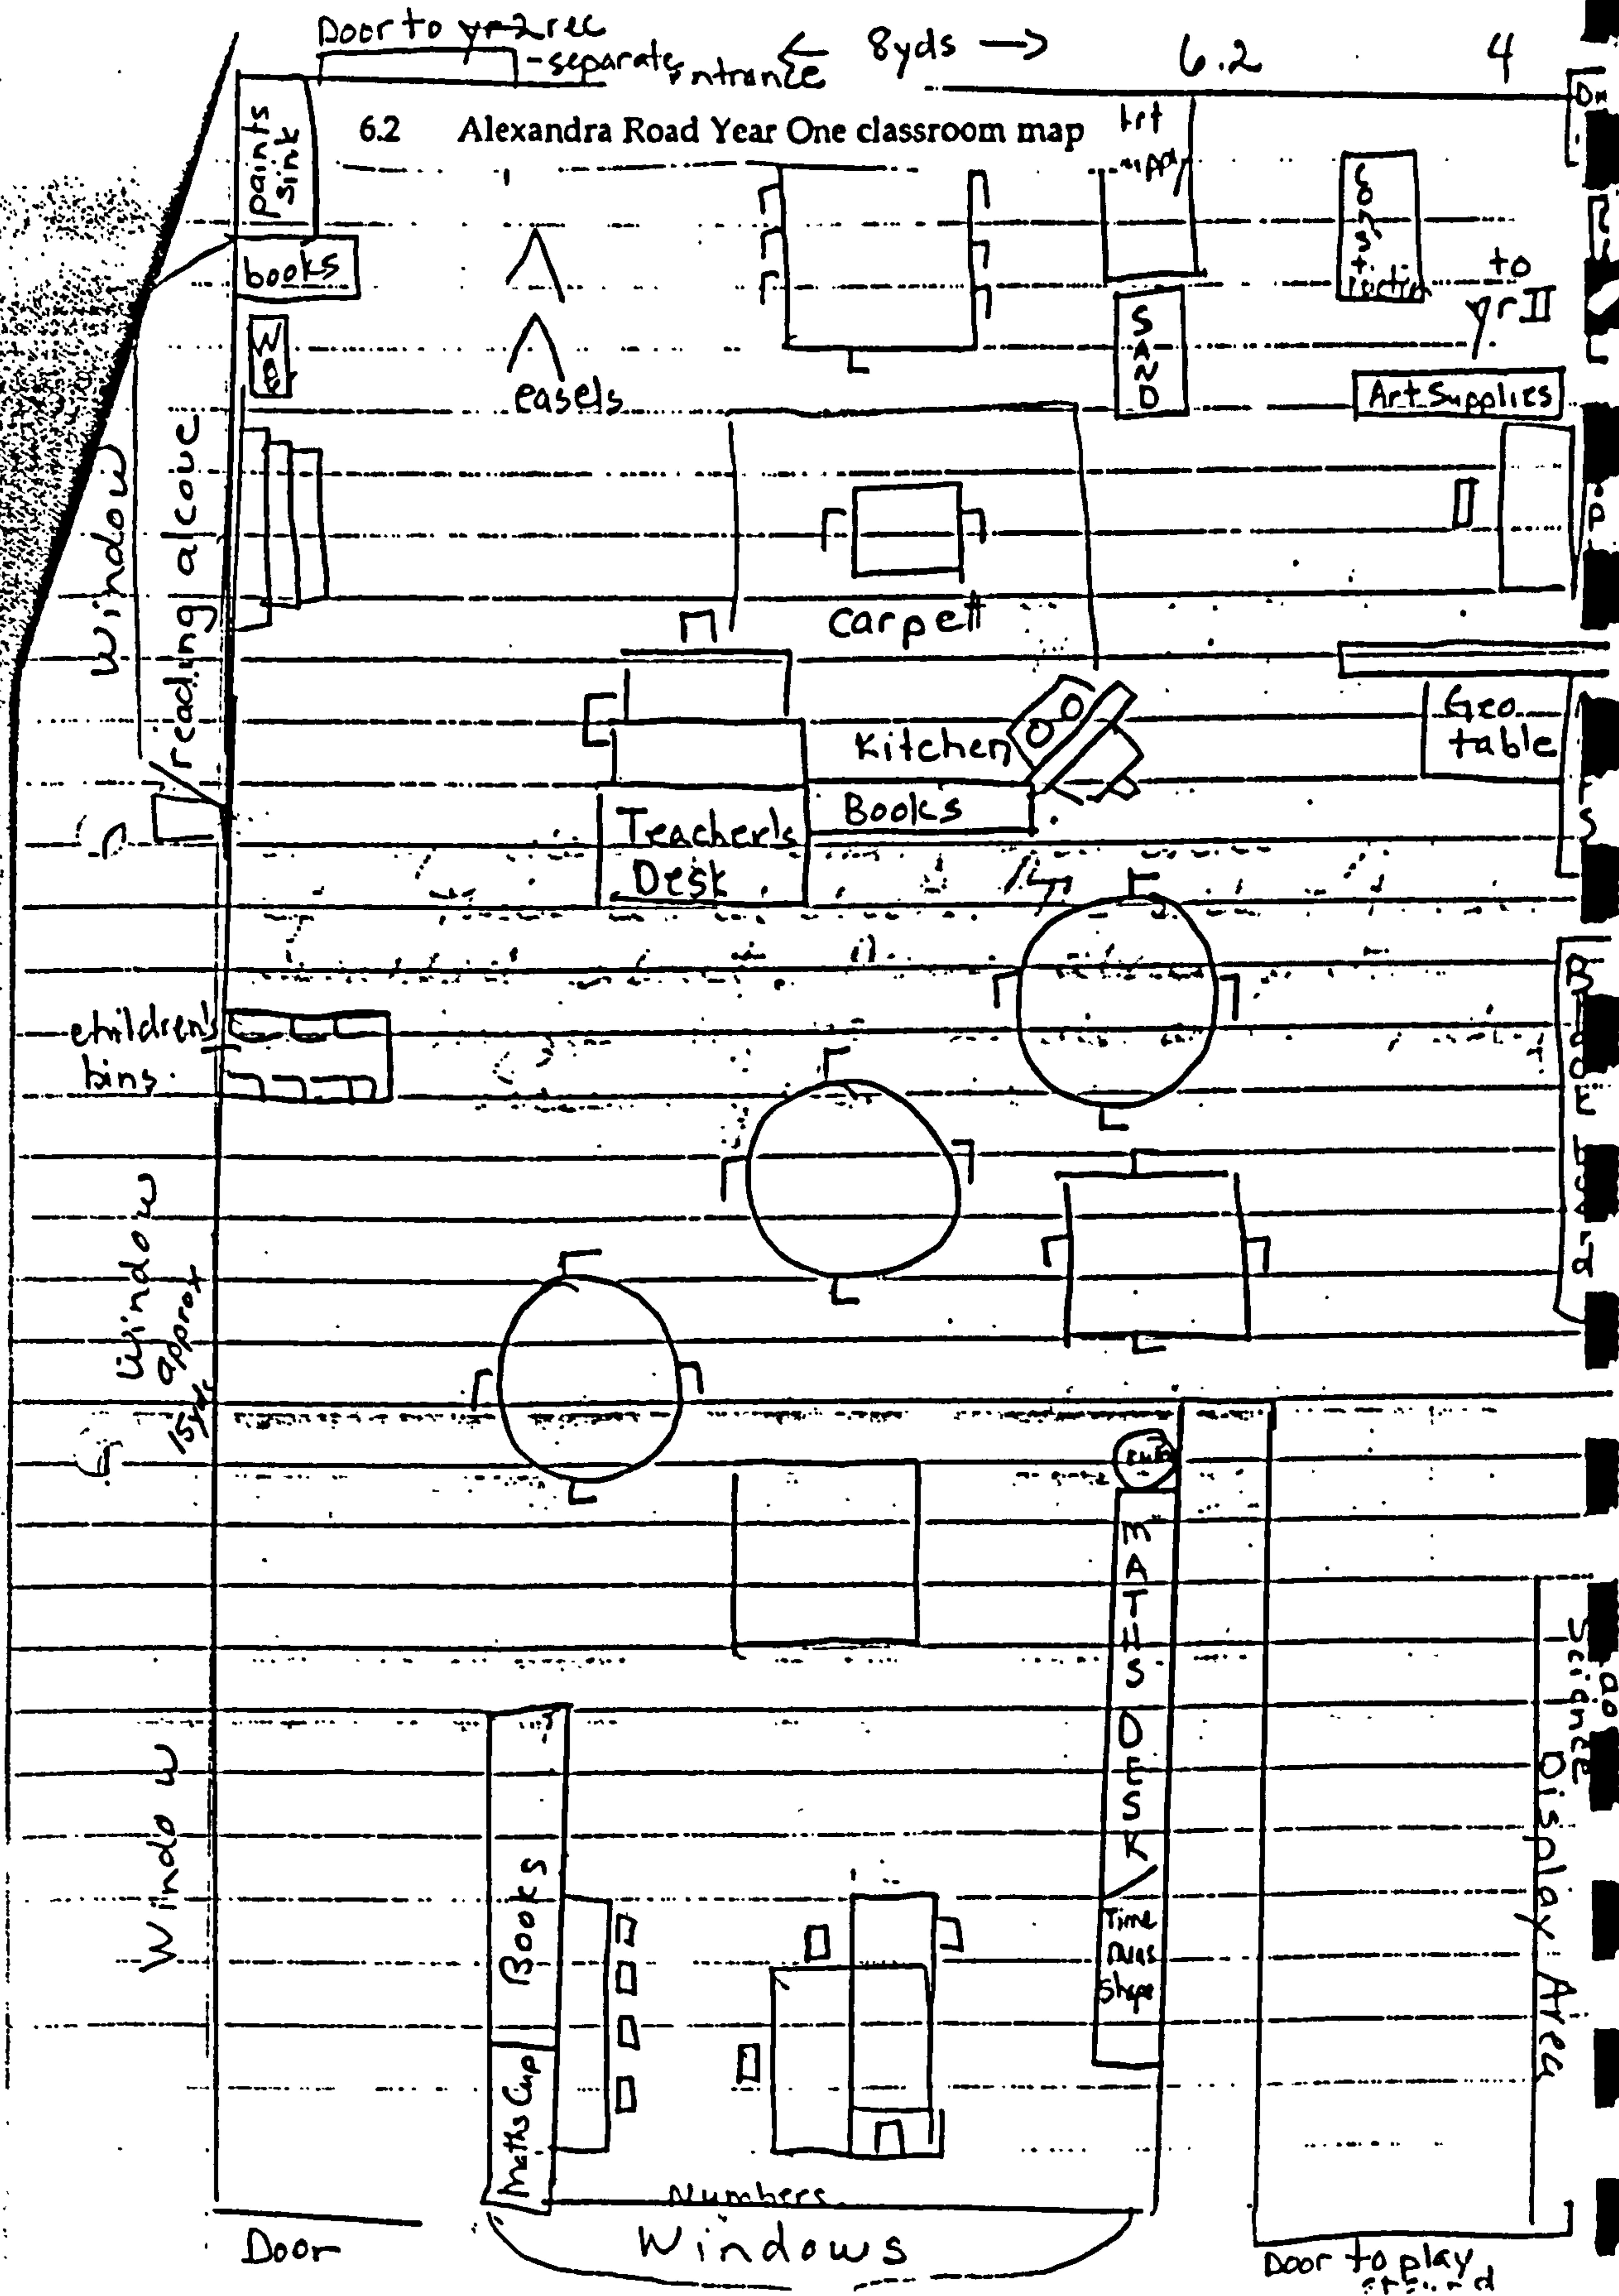 Door to yr 2 rec
- separate entrance
← 8yds →
6.2
4
6.2 Alexandra Road Year One classroom map
paints
sink
books
easels
Art
supply
SAND
to
yr II
Art Supplies
Window
reading alcove
carpet
Kitchen
Books
Teacher's
Desk
Geo
table
children's
bins
Window
approx
15yds
MATHS DESK/
Time
Shape
Window
Books
Maths Cup
Numbers
Science
Display Area
Door
Windows
Door to play